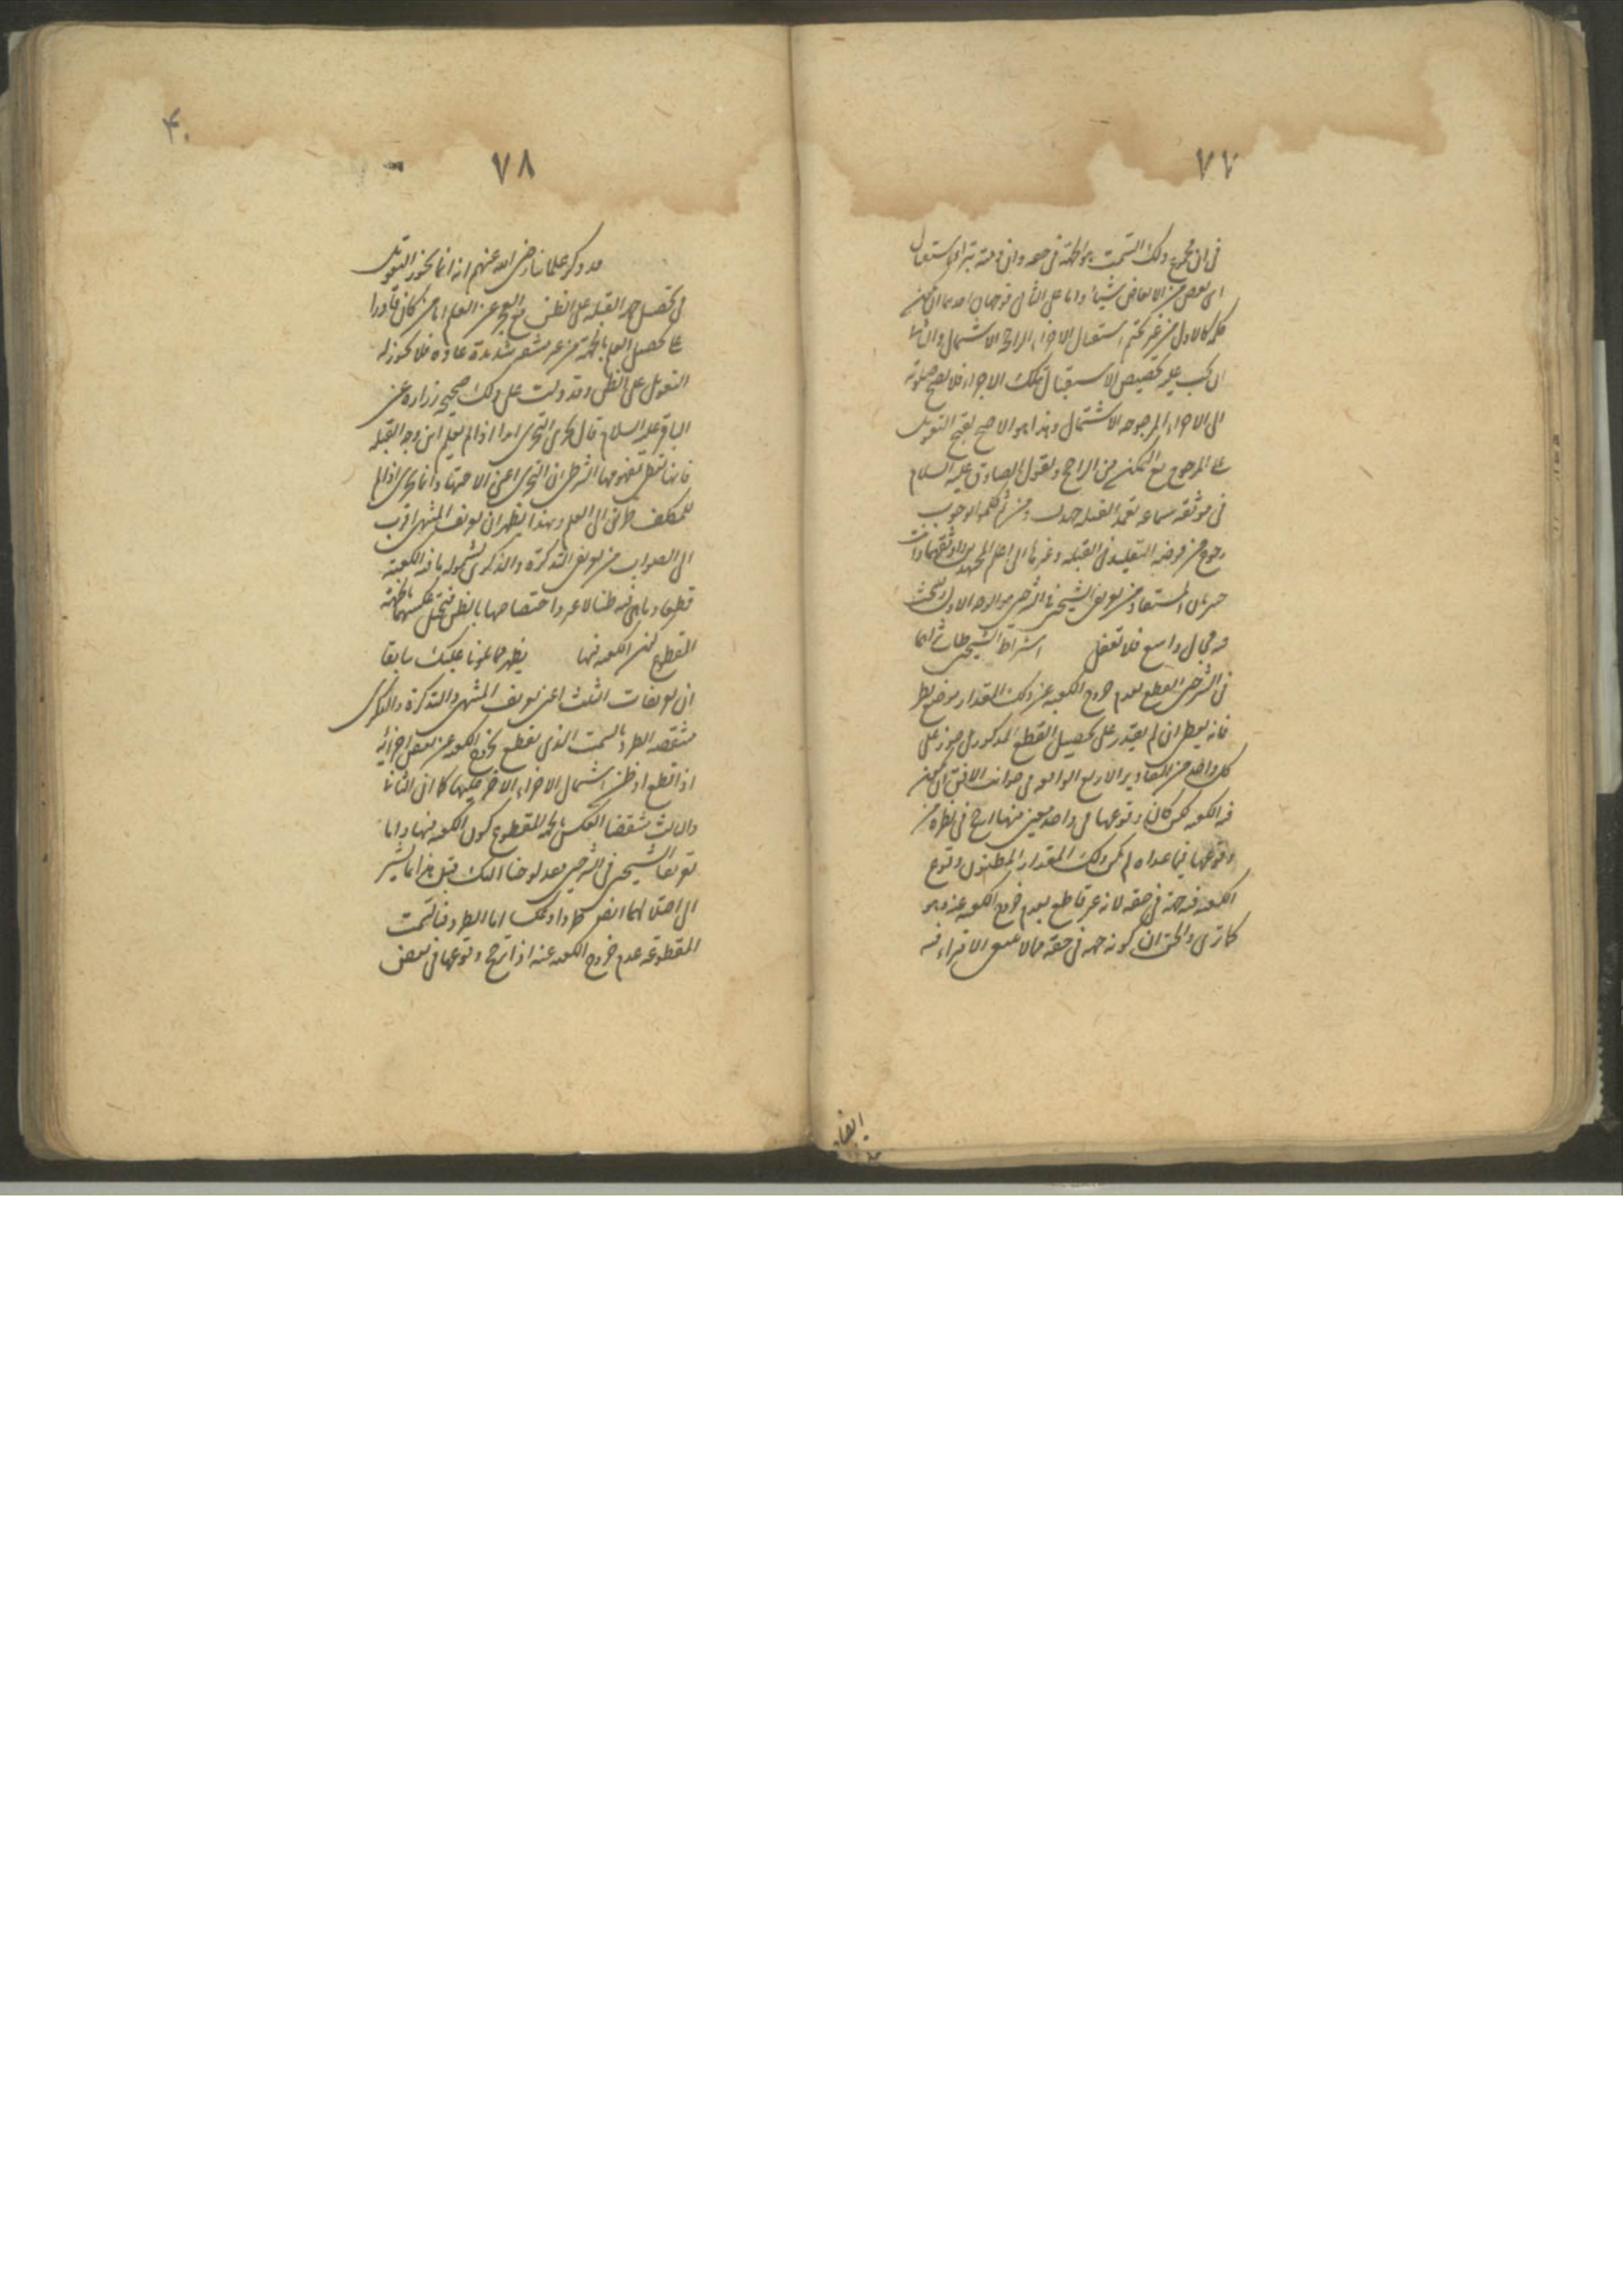 ٧٧
في ان مجموع ذلك السمت هو الجهة في حقه وان ذمته تبرأ باستقبال
اي بعض من الابعاض شاء واما على الثاني فوجهان احدهما ان يكون
حكمه كالاول من غير تحتم استقبال الاجزاء الراجح الاشتمال والثاني
ان يجب عليه تخصيص الاستقبال بتلك الاجزاء فلا يصح صلوته
الى الاجزاء المرجوحة الاشتمال وهذا هو الاصح لقبح التعويل
على المرجوح مع التمكن من الراجح ولقول الصادق عليه السلام
في موثقة سماعة تعمد القبلة جهدك ومن ثم حكموا بوجوب
رجوع من فرضه التقليد في القبلة وغيرها الى اعلم المجتهدين واوثقهما وانت
خبير بان المستفاد من تعريف الشيخين في الشرحين هو الوجه الاول وللبحث
فيه مجال واسع فلا تغفل اشتراط الشيخين طاب ثراهما
في الشرحين القطع بعدم خروج الكعبة عن ذلك المقدار موضع نظر
فانه يعطي ان لم يقدر على تحصيل القطع المذكور بل جوز على
كل واحد من المقادير الاربع الواقعة في جوانب الافق ان يكون
فيه الكعبة لكن كان وقوعها في واحد معين منها ارجح في نظره من
وقوعها فيما عداه لم يكن ذلك المقدار المظنون وقوع
الكعبة فيه جهة في حقه لانه غير قاطع بعدم خروج الكعبة عنه وهو
كما ترى والحق ان كونه جهة في حقه مما لا ينبغي الامتراء فيه
٤٠
٧٨
قد ذكر علمائنا رضي الله عنهم انه انما يجوز التعويل
في تحصيل جهة القبلة على الظن مع العجز عن العلم اما من كان قادرا
على تحصيل العلم بالجهة من غير مشقة شديدة عادة فلا يجوز له
التعويل على الظن وقد دلت على ذلك صحيحة زرارة عن
الباقر عليه السلام قال يجزي التحري ابدا اذا لم يعلم اين وجه القبلة
فانها تعطي بمفهومها الشرطي ان التحري اعني الاجتهاد انما يجزي اذا لم
للمكلف طريق الى العلم وبهذا يظهر ان تعريف المنتهى اقرب
الى الصواب من تعريفي التذكرة والذكرى لشموله ما فيه الكعبة
قطعا وما هي فيه ظنا لا غير واختصاصهما بالظن فيختل عكسهما بالجهة
المقطوع بكون الكعبة فيها يظهر مما تلوناه عليك سابقا
ان تعريفات الثلث اعني تعريف المنتهى والتذكرة والذكرى
منتقضة الطرد بالسمت الذي يقطع بخروج الكعبة عن بعض اجزائه
اذا قطع او ظن اشتمال الاجزاء الاخر عليها كما ان الثاني
والثالث منتقضا العكس بالجهة المقطوع كون الكعبة فيها واما
تعريفا الشيخين في الشرحين فقد لوحنا اليك قبل هذا بما يشير
الى اختلالهما ايضا طردا وعكسا اما الطرد فبالسمت
المقطوع عدم خروج الكعبة عنه اذا ترجح وقوعها في بعض